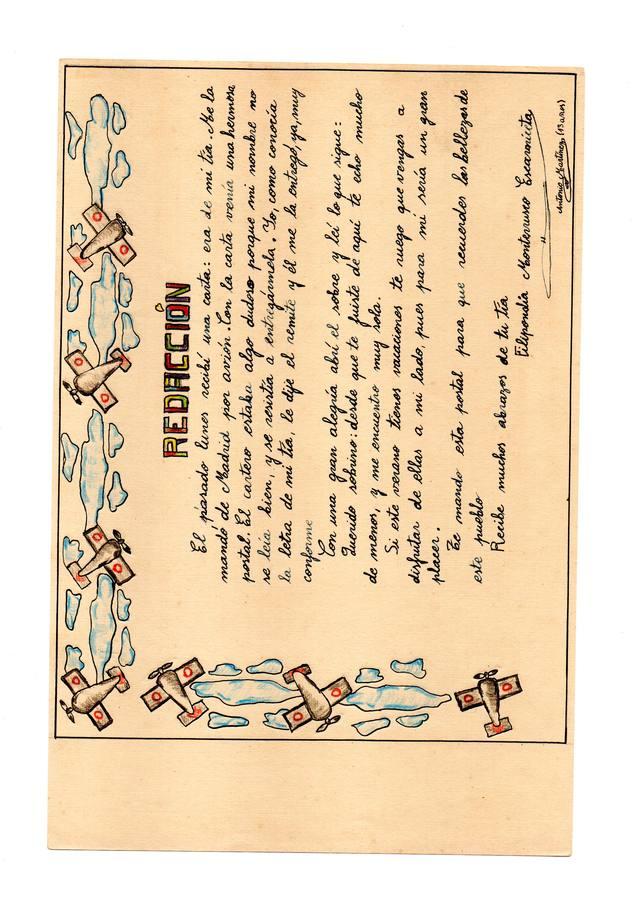 REDACCIÓN
El pasado lunes recibí una carta: era de mi tía. Me la
mandó de Madrid por avión. Con la carta venía una hermosa
postal. El cartero estaba algo dudoso porque mi nombre no
se leía bien, y se resistía a entregármela. Yo, como conocía
la letra de mi tía, le dije el remite y él me la entregó, ya, muy
conforme
Con una gran alegría abrí el sobre y leí lo que sigue:
Querido sobrino: desde que te fuiste de aquí te echo mucho
de menos, y me encuentro muy sola.
Si este verano tienes vacaciones te ruego que vengas a
disfrutar de ellas a mi lado, pues para mí sería un gran
placer.
Te mando esta postal para que recuerdes las bellezas de
este pueblo
Recibe muchos abrazos de tu tía
Filipondia Monterrusco Escaronieta
Antonio Martínez (13 años)